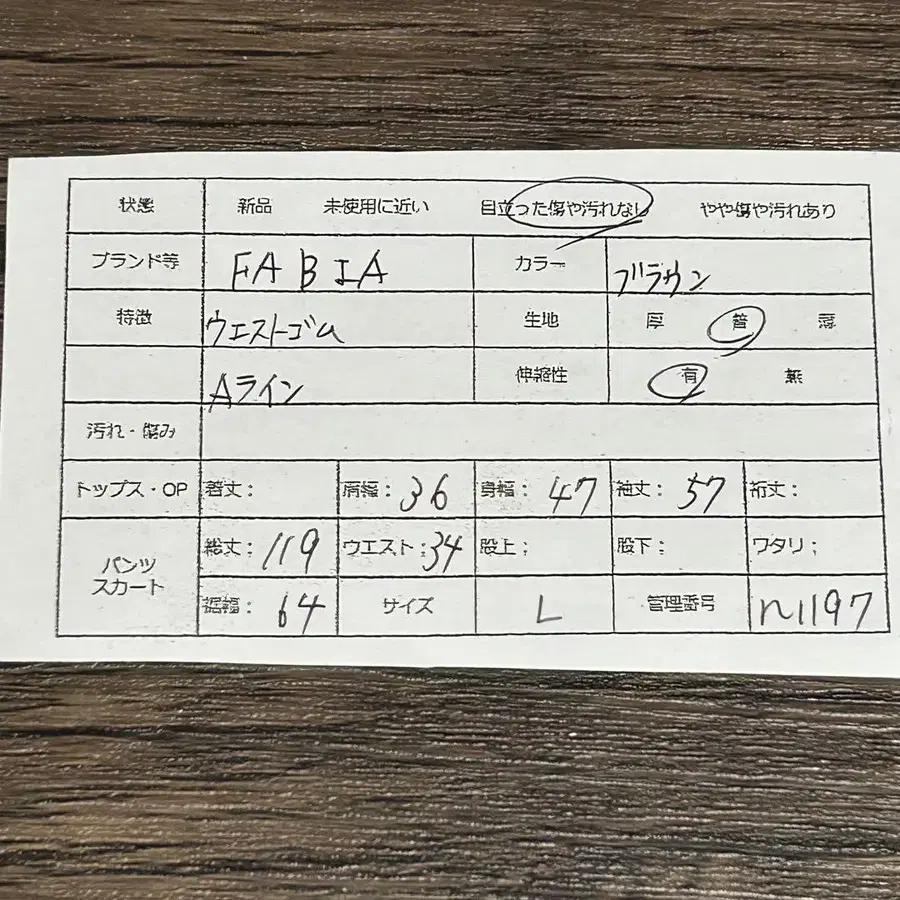 状態 新品 未使用に近い 目立った傷や汚れなし やや傷や汚れあり
ブランド等 FABIA カラー ブラウン
特徴 ウエストゴム 生地 厚 普 薄
Aライン 伸縮性 有 無
汚れ・傷み
トップス・OP 着丈: 肩幅: 36 身幅: 47 袖丈: 57 裄丈:
パンツ スカート 総丈: 119 ウエスト: 34 股上; 股下: ワタリ;
裾幅: 64 サイズ L 管理番号 n1197